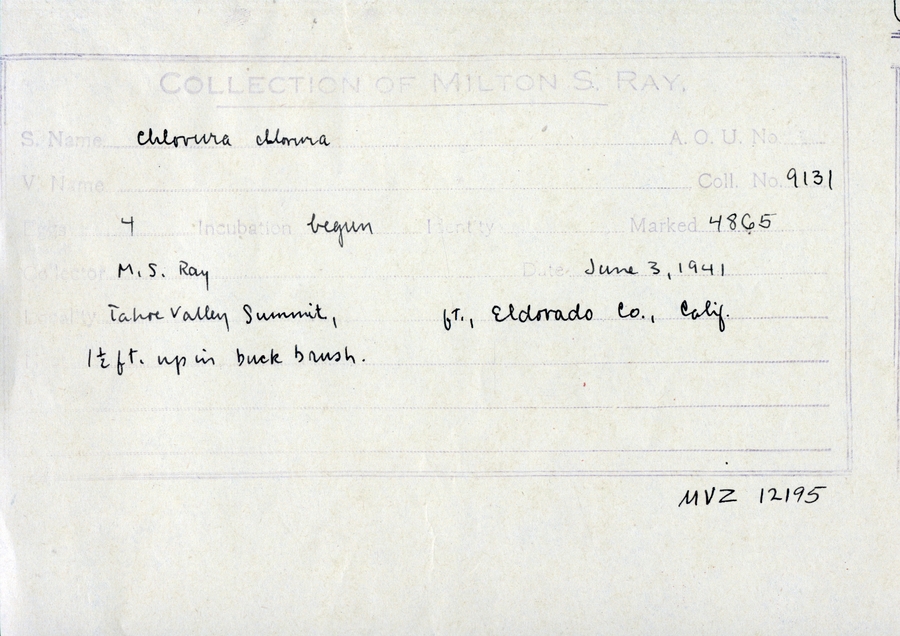 COLLECTION OF MILTON S. RAY.
S. Name Chlorura chlorura A. O. U. No.
V. Name Coll. No. 9131
Eggs 4 Incubation begun Identity Marked 4865
Collector M. S. Ray Date June 3, 1941
Locality Tahoe Valley Summit, ft., Eldorado Co., Calif.
1½ ft. up in buck brush.
MVZ 12195